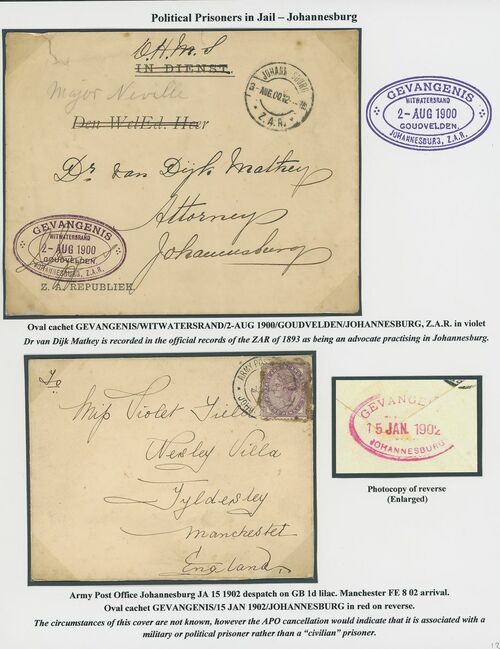 Political Prisoners in Jail – Johannesburg
O.H.M.S
IN DIENST.
Major Neville
Den WelEd. Heer
Dr van Dijk Mathey
Attorney
Johannesburg
JOHANNESBURG
AUG 00
Z.A.R.
GEVANGENIS
WITWATERSRAND
2-AUG 1900
GOUDVELDEN
JOHANNESBURG, Z.A.R.
Z. A. REPUBLIEK.
GEVANGENIS
WITWATERSRAND
2-AUG 1900
GOUDVELDEN.
JOHANNESBURG, Z.A.R.
Oval cachet GEVANGENIS/WITWATERSRAND/2-AUG 1900/GOUDVELDEN/JOHANNESBURG, Z.A.R. in violet
Dr van Dijk Mathey is recorded in the official records of the ZAR of 1893 as being an advocate practising in Johannesburg.
To
Miss Violet
Wesley Villa
Tyldesley
Manchester
England
ARMY
GEVANGE
15 JAN. 1902
JOHANNESBURG
Photocopy of reverse
(Enlarged)
Army Post Office Johannesburg JA 15 1902 despatch on GB 1d lilac. Manchester FE 8 02 arrival.
Oval cachet GEVANGENIS/15 JAN 1902/JOHANNESBURG in red on reverse.
The circumstances of this cover are not known, however the APO cancellation would indicate that it is associated with a
military or political prisoner rather than a “civilian” prisoner.